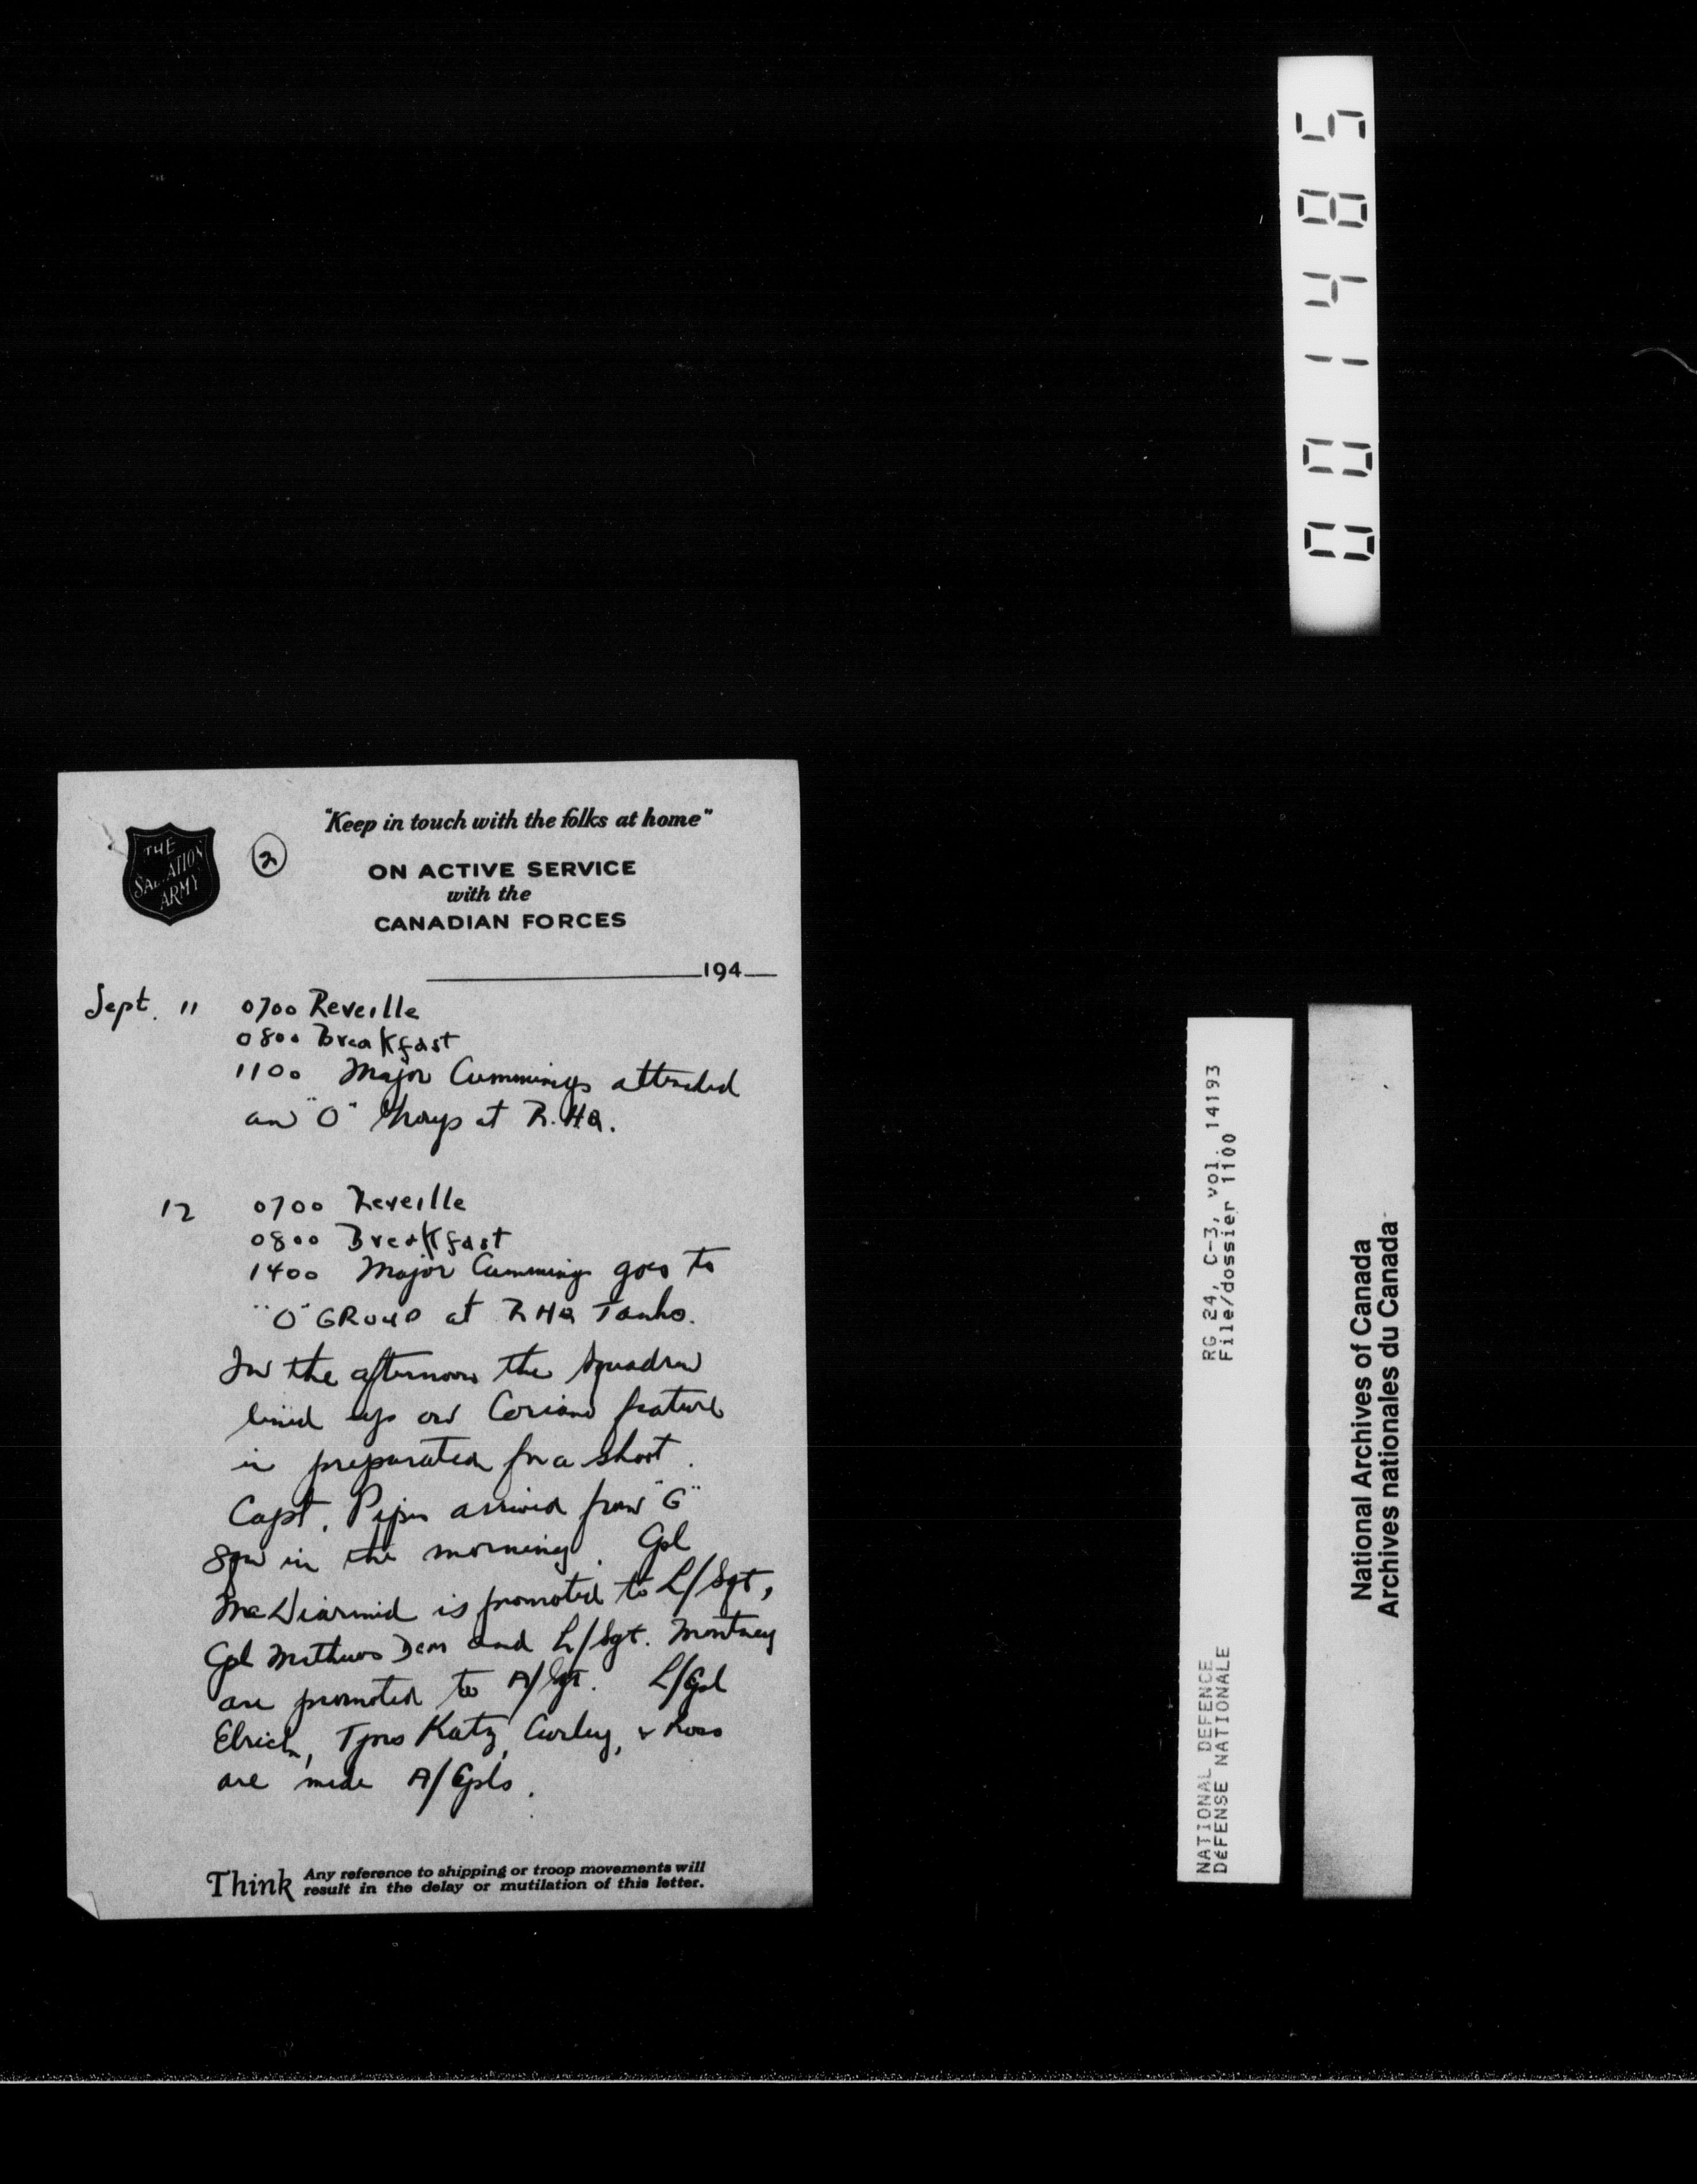 THE
SALVATION
ARMY
2
"Keep in touch with the folks at home"
ON ACTIVE SERVICE
with the
CANADIAN FORCES
194
Sept. 11 0700 Reveille
0800 Breakfast
1100 Major Cummings attended
an "O" Group at R.HQ.
12 0700 Reveille
0800 Breakfast
1400 Major Cummings goes to
"O" GROUP at RHQ Tanks.
In the afternoon the squadron
lined up on Coriano feature
in preparation for a shoot.
Capt. Piper arrived from "G"
Sqn in the morning. Cpl
McDiarmid is promoted to L/Sgt,
Cpl Mathews Dem and L/Sgt. Montney
are promoted to A/Sgt. L/Cpl
Elrich, Tprs Katz, Curley, & Ross
are made A/Cpls.
Think Any reference to shipping or troop movements will
result in the delay or mutilation of this letter.
001485
RG 24, C-3, vol. 14193
File/dossier 1100
NATIONAL DEFENCE
DÉFENSE NATIONALE
National Archives of Canada
Archives nationales du Canada